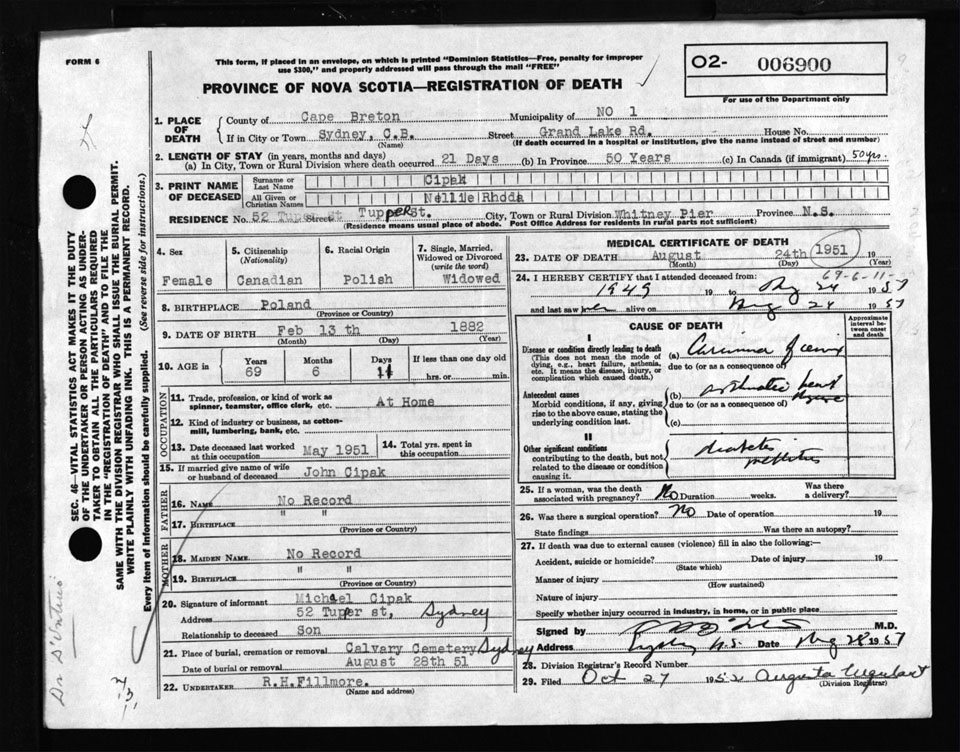 FORM 6
This form, if placed in an envelope, on which is printed "Dominion Statistics—Free, penalty for improper
use $300," and properly addressed will pass through the mail "FREE"
PROVINCE OF NOVA SCOTIA—REGISTRATION OF DEATH
O2- 006900
For use of the Department only
1. PLACE OF DEATH
County of Cape Breton Municipality of NO 1
If in City or Town Sydney, C.B. Street Grand Lake Rd. House No.
(Name) (If death occurred in a hospital or institution, give the name instead of street and number)
2. LENGTH OF STAY (in years, months and days)
(a) In City, Town or Rural Division where death occurred 21 Days (b) In Province 50 Years (c) In Canada (if immigrant) 50 yrs.
3. PRINT NAME OF DECEASED
Surname or Last Name Cipak
All Given or Christian Names Nellie Rhoda
RESIDENCE No. 52 Street Tupper St. City, Town or Rural Division Whitney Pier Province N.S.
(Residence means usual place of abode. Post Office Address for residents in rural parts not sufficient)
4. Sex
Female
5. Citizenship
(Nationality)
Canadian
6. Racial Origin
Polish
7. Single, Married, Widowed or Divorced
(write the word)
Widowed
8. BIRTHPLACE Poland
(Province or Country)
9. DATE OF BIRTH Feb 13 th 1882
(Month) (Day) (Year)
10. AGE in
Years Months Days If less than one day old
69 6 11 hrs. or min.
OCCUPATION
11. Trade, profession, or kind of work as
spinner, teamster, office clerk, etc. At Home
12. Kind of industry or business, as cotton-
mill, lumbering, bank, etc.
13. Date deceased last worked
at this occupation May 1951
14. Total yrs. spent in
this occupation
15. If married give name of wife
or husband of deceased John Cipak
FATHER
16. NAME No Record
17. BIRTHPLACE " "
(Province or Country)
MOTHER
18. MAIDEN NAME No Record
19. BIRTHPLACE " "
(Province or Country)
20. Signature of informant Michael Cipak
Address 52 Tupper st, Sydney
Relationship to deceased Son
21. Place of burial, cremation or removal Calvary Cemetery Sydney
Date of burial or removal August 28th 51
22. UNDERTAKER R.H.Fillmore.
(Name and address)
MEDICAL CERTIFICATE OF DEATH
23. DATE OF DEATH August 24th 1951
(Month) (Day) (Year)
69-6-11-
24. I HEREBY CERTIFY that I attended deceased from:
1949 19 to Aug 24 1951
and last saw her alive on Aug 24 1951
CAUSE OF DEATH
Approximate interval between onset and death
I
Disease or condition directly leading to death
(This does not mean the mode of
dying, e.g., heart failure, asthenia,
etc. It means the disease, injury, or
complication which caused death.)
(a)
due to (or as a consequence of)
Antecedent causes
Morbid conditions, if any, giving
rise to the above cause, stating the
underlying condition last.
(b) heart
due to (or as a consequence of)
(c)
II
Other significant conditions
contributing to the death, but not
related to the disease or condition
causing it.
diabetes
mellitus
25. If a woman, was the death
associated with pregnancy? No Duration weeks. Was there
a delivery?
26. Was there a surgical operation? No Date of operation 19
State findings Was there an autopsy?
27. If death was due to external causes (violence) fill in also the following:—
Accident, suicide or homicide? Date of injury 19
(State which)
Manner of injury
(How sustained)
Nature of injury
Specify whether injury occurred in industry, in home, or in public place
Signed by M.D.
Address Sydney N.S. Date Aug 28 1951
28. Division Registrar's Record Number
29. Filed Oct 27 1952 Augusta Urquhart
(Division Registrar)
SEC. 46—VITAL STATISTICS ACT MAKES IT THE DUTY
OF THE UNDERTAKER OR PERSON ACTING AS UNDER-
TAKER TO OBTAIN ALL THE PARTICULARS REQUIRED
IN THE "REGISTRATION OF DEATH" AND TO FILE THE
SAME WITH THE DIVISION REGISTRAR WHO SHALL ISSUE THE BURIAL PERMIT.
WRITE PLAINLY WITH UNFADING INK. THIS IS A PERMANENT RECORD.
Every item of Information should be carefully supplied. (See reverse side for instructions.)